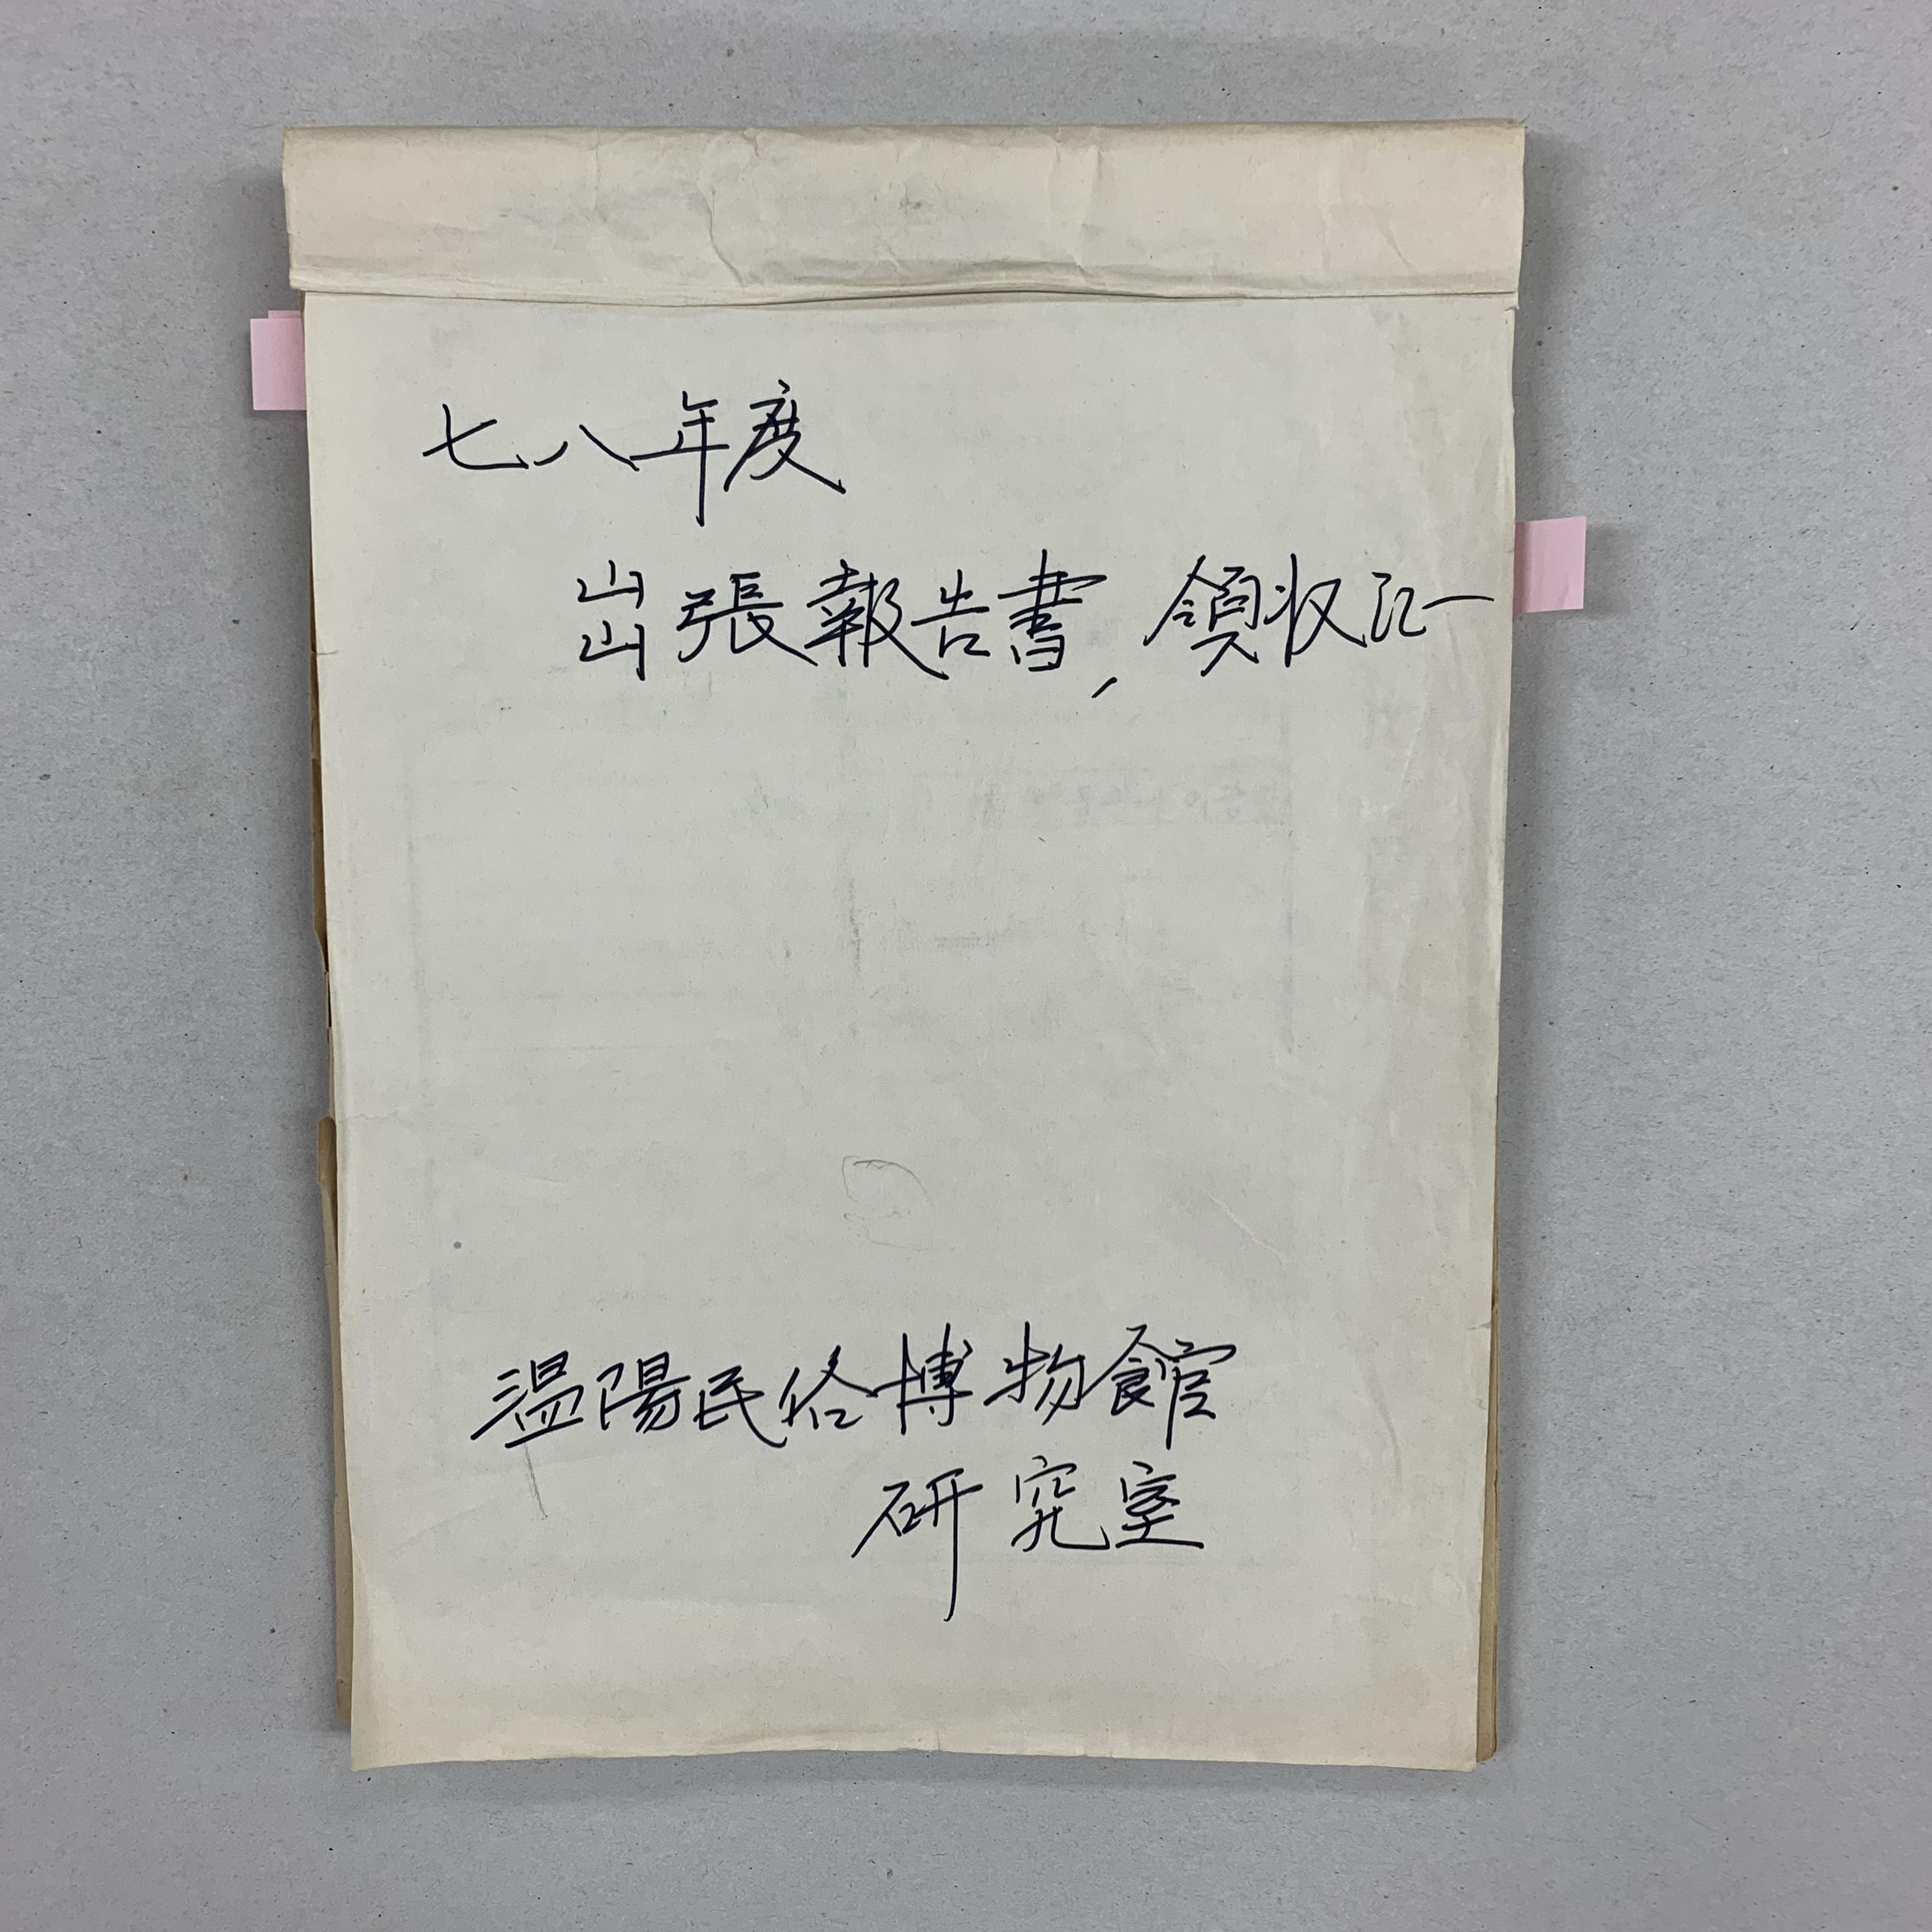 七八年度
出張報告書, 領収
温陽民俗博物館
研究室